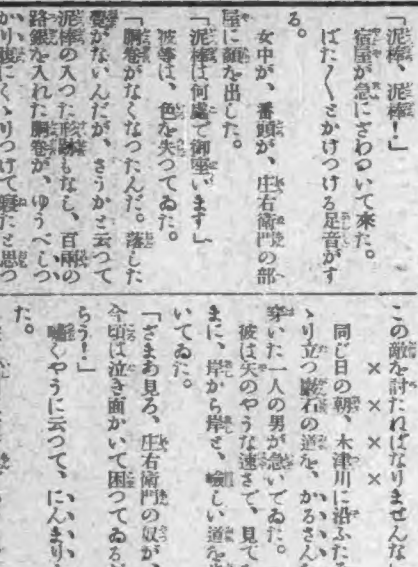 「泥棒、泥棒！」
宿屋が急にざわついて来た。
ばた〱とかけつける足音がす
る。
女中が、番頭が、庄右衛門の部
屋に顔を出した。
「泥棒は何處で御座います」
彼等は、色を失つてゐた。
「胴巻がなくなつたんだ。落した
覺がないんだが、さうかと云つて
泥棒の入つた形跡もなし、百兩の
路銀を入れた胴巻が、ゆうべしつ
かり腹にくゝりつけて寢たと思つ
この敵を討たねばなりませんな」
××××
同じ日の朝、木津川に沿ふた
ゝり立つ巖石の道を、かるさんを
穿いた一人の男が急いでゐた。
彼は矢のやうな速さで、見て
まに、岸から岸と、嶮しい道を
いてゐた。
「ざまあ見ろ、庄右衛門の奴が、
今頃は泣き面かいて困つてゐる
らう！」
嘯くやうに云つて、にんまり
た。